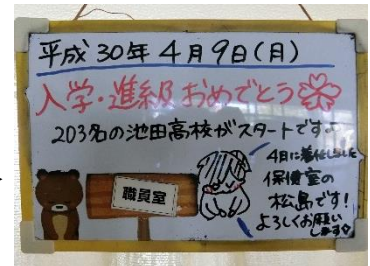 平成30年4月9日(月)
入学・進級おめでとう
203名の池田高校がスタートです♪
4月に着任しました
保健室の
松島です!
よろしくお願い
します
職員室